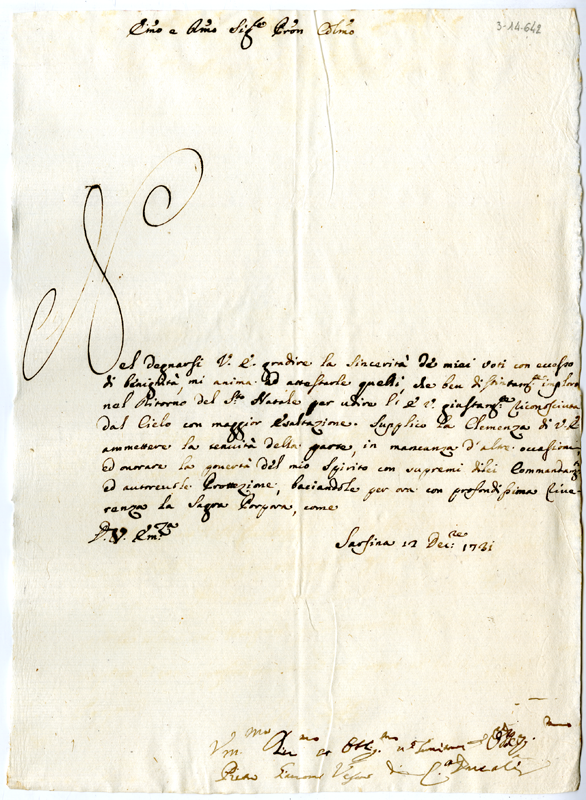 3-14-642
Em̃o e Rmo Sigre Pron Colmo
Nel degnarsi V. E. gradire la sincerità de miei voti con eccesso
di benignità mi anima ad attestarle quelli, che ben distintamte imploro
nel Ritorno del Sto Natale per udire l'E V. giustamte riconosciuta
dal Cielo con maggior Esaltazione. Supplico la Clemenza di V. E
ammettere la tenuità della parte, in mancanza d'altre occasioni
ed onorare la povertà del mio Spirito con supremi di Lei Commandamti
ed autorevole Protezione, baciandole per ora con profondissima Rive
renza la Sagra Porpora, come
D. V. Emza
Sarsina 12 Decre 1721
Vmmo Dmo et Obbmo
Vescovo di